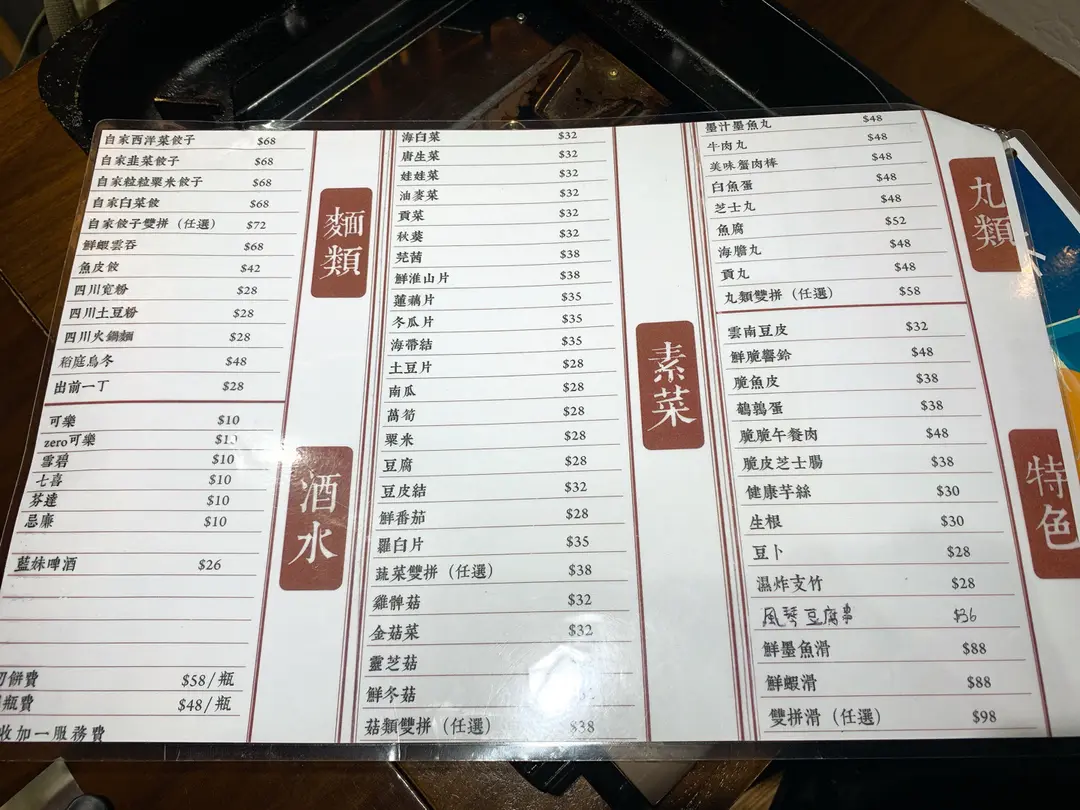 自家西洋菜餃子 $68
自家韭菜餃子 $68
自家粒粒粟米餃子 $68
自家白菜餃 $68
自家餃子雙拼（任選） $72
鮮蝦雲吞 $68
魚皮餃 $42
四川寬粉 $28
四川土豆粉 $28
四川火鍋麵 $28
稻庭烏冬 $48
出前一丁 $28
麵類
可樂 $10
zero可樂
雪碧 $10
七喜 $10
芬達 $10
忌廉 $10
藍妹啤酒 $26
切餅費 $58/瓶
瓶費 $48/瓶
收加一服務費
酒水
海白菜 $32
唐生菜 $32
娃娃菜 $32
油麥菜 $32
貢菜 $32
秋葵 $32
芫茜 $38
鮮淮山片 $38
蓮藕片 $35
冬瓜片 $35
海帶結 $35
土豆片 $28
南瓜 $28
萵筍 $28
粟米 $28
豆腐 $28
豆皮結 $32
鮮番茄 $28
羅白片 $35
蔬菜雙拼（任選） $38
雞髀菇 $32
金菇菜 $32
靈芝菇
鮮冬菇
菇類雙拼（任選） $38
素菜
墨汁墨魚丸 $48
牛肉丸 $48
美味蟹肉棒 $48
白魚蛋 $48
芝士丸 $48
魚腐 $52
海膽丸 $48
貢丸 $48
丸類雙拼（任選） $58
丸類
雲南豆皮 $32
鮮脆響鈴 $48
脆魚皮 $38
鵪鶉蛋 $38
脆脆午餐肉 $48
脆皮芝士腸 $38
健康芋絲 $30
生根 $30
豆卜 $28
濕炸支竹 $28
風琴豆腐串 $36
鮮墨魚滑 $88
鮮蝦滑 $88
雙拼滑（任選） $98
特色